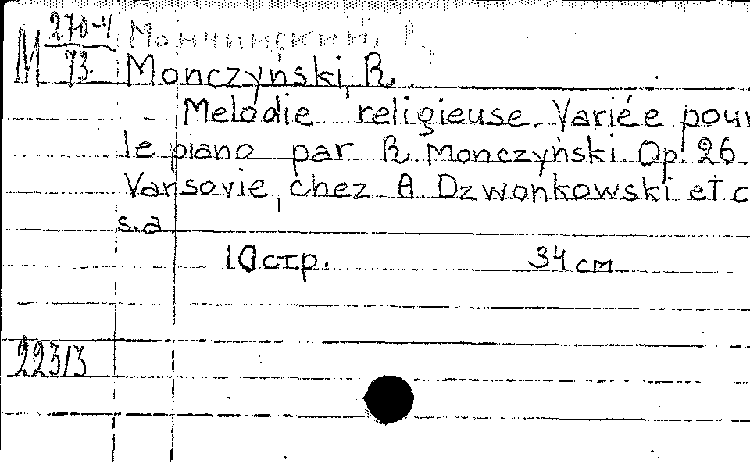 М 270-4/73
Мончинский, Р.
Monczyński, R.
Melodie religieuse. Variée pour
le piano par R. Monczyński. Op. 26
Varsovie, chez A. Dzwonkowski et C
s.a
10 стр. 34 см
22313